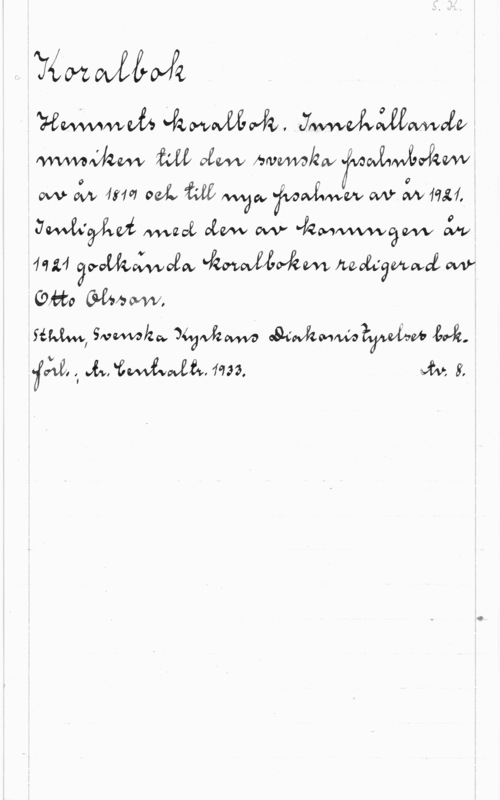 S. K.
Koralbok
Hemmets koralbok. Innehållande
musiken till den svenska psalmboken
av år 1819 och till nya psalmer av år 1921.
I enlighet med den av konungen år
1921 godkända koralboken redigerad av
Otto Olsson.
Sthlm, Svenska Kyrkans Diakonistyrelses bok-
förl.; tr. Centraltr. 1933. tv. 8.